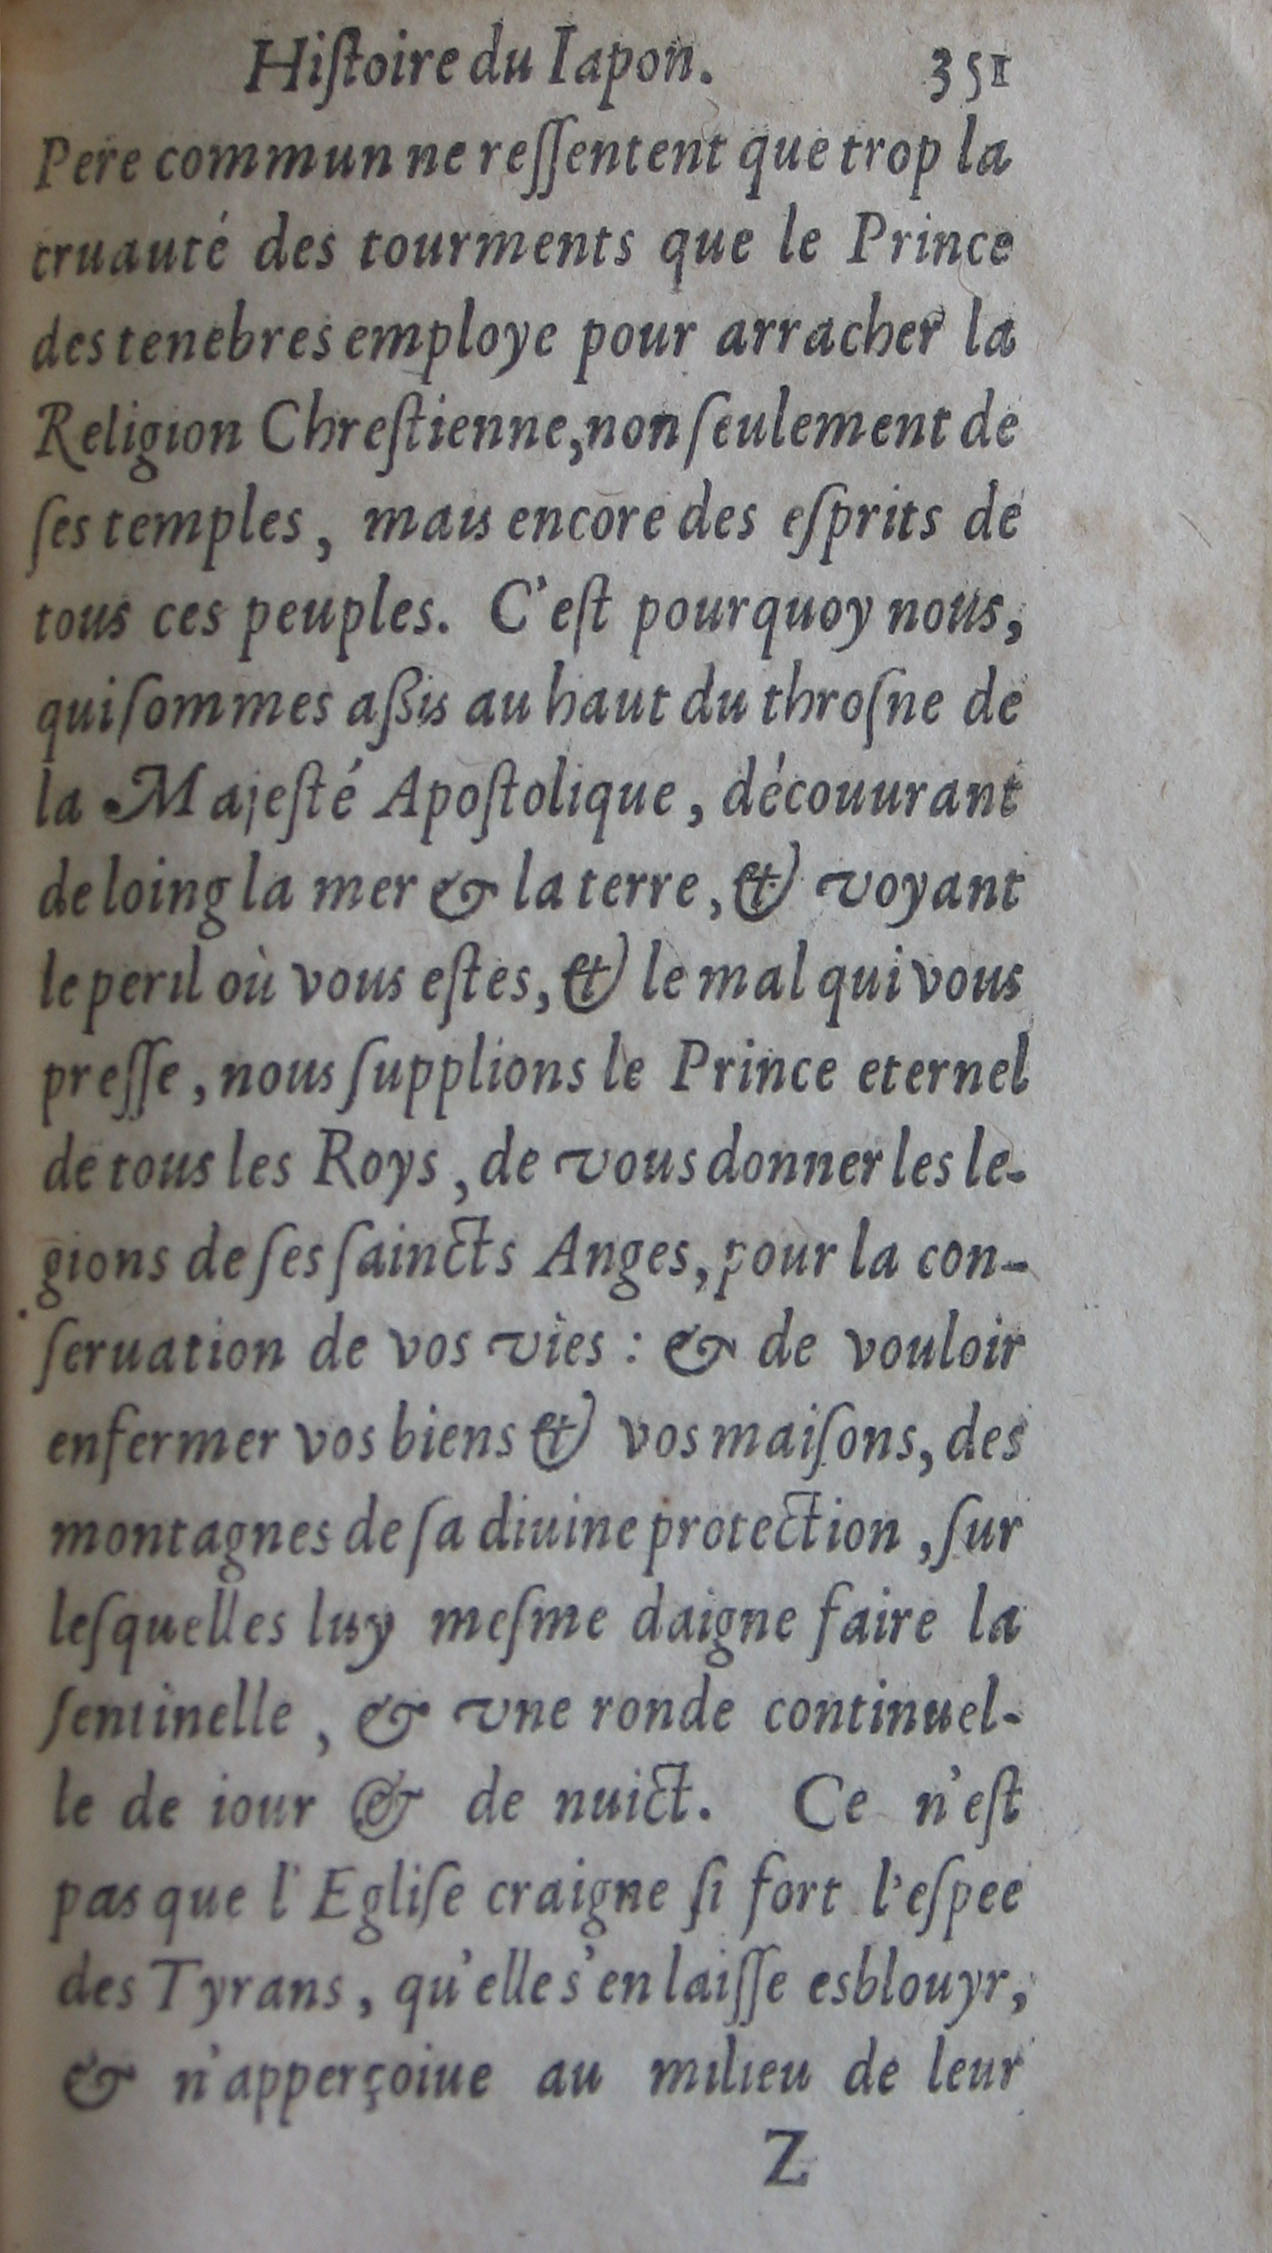 Hiſtoire du Iapon. 351
Pere commun ne reſſentent que trop la
cruauté des tourments que le Prince
des tenebres employe pour arracher la
Religion Chreſtienne, non ſeulement de
ſes temples, mais encore des eſprits de
tous ces peuples. C'eſt pourquoy nous,
qui ſommes aſſis au haut du throſne de
la Majeſté Apoſtolique, découurant
de loing la mer & la terre, & voyant
le peril où vous eſtes, & le mal qui vous
preſſe, nous ſupplions le Prince eternel
de tous les Roys, de vous donner les le-
gions de ſes ſaincts Anges, pour la con-
ſeruation de vos vies : & de vouloir
enfermer vos biens & vos maiſons, des
montagnes de ſa diuine protection, ſur
leſquelles luy meſme daigne faire la
ſentinelle, & vne ronde continuel-
le de iour & de nuict. Ce n'eſt
pas que l'Egliſe craigne ſi fort l'eſpee
des Tyrans, qu'elle s'en laiſſe esblouyr,
& n'apperçoiue au milieu de leur
Z